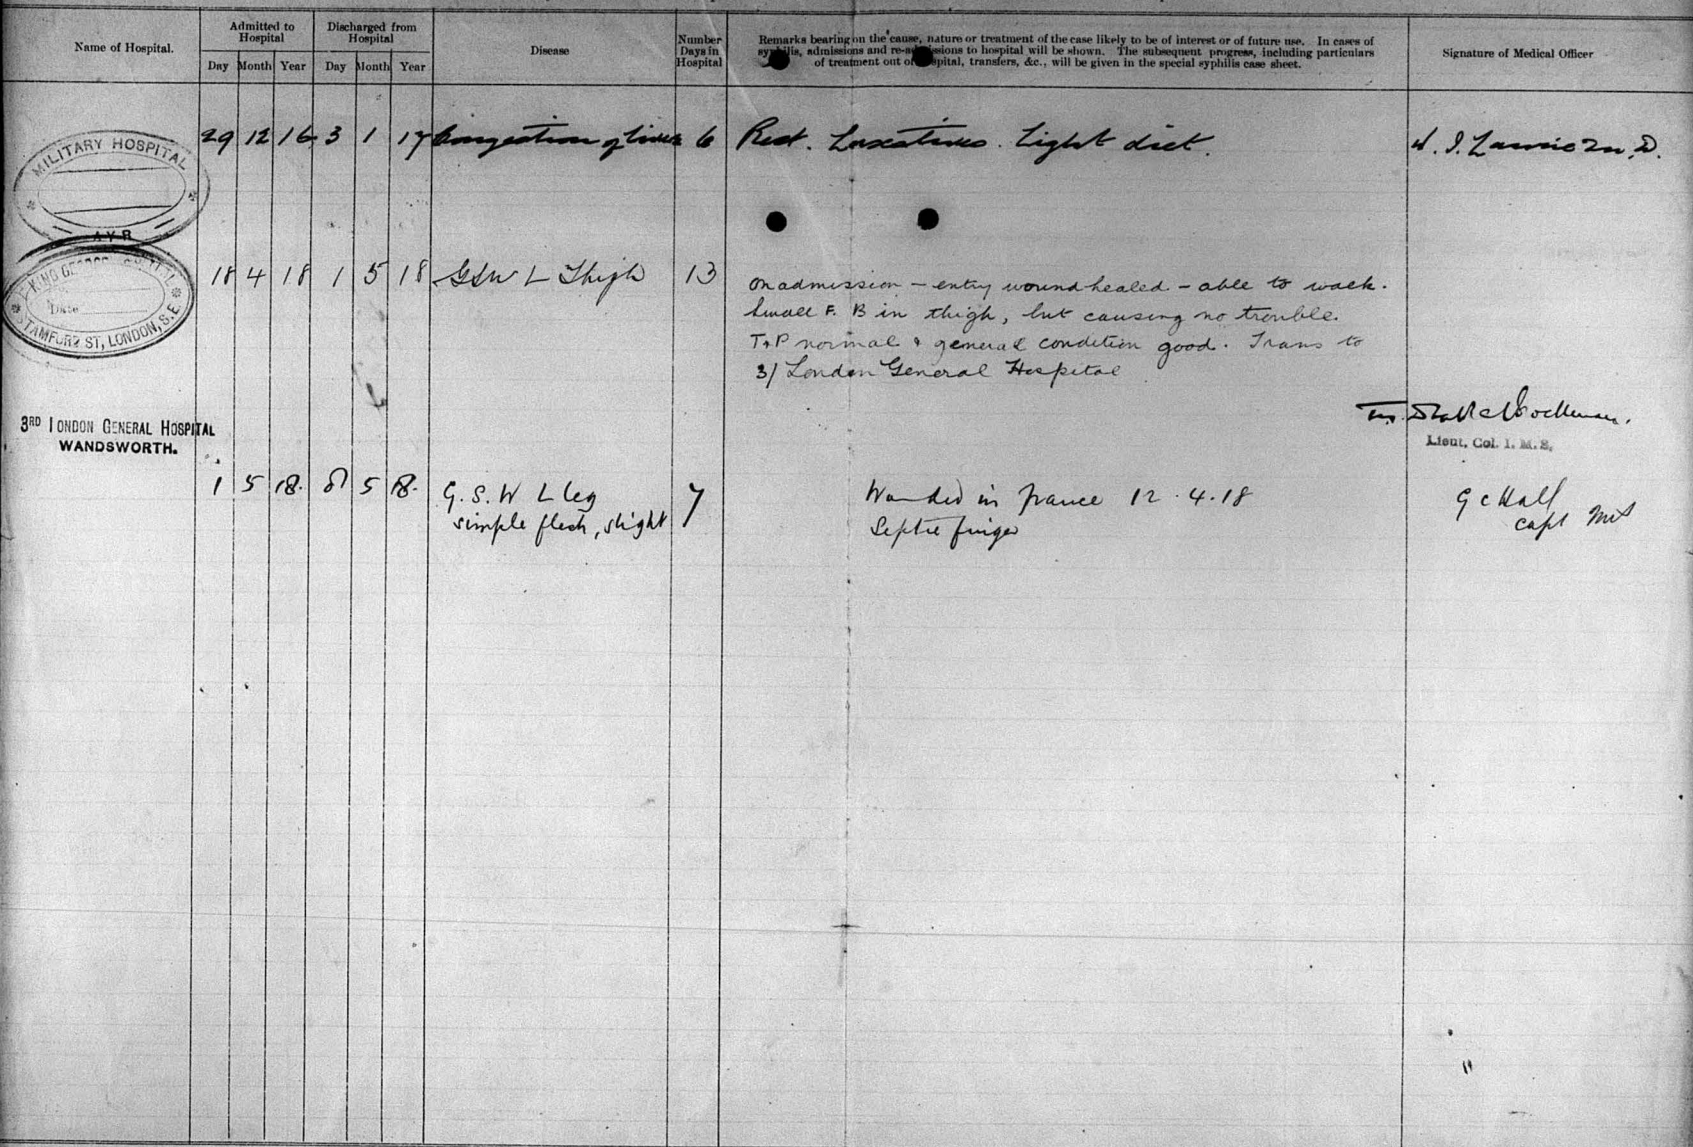 Name of Hospital.
Admitted to Hospital
Discharged from Hospital
Day Month Year Day Month Year
Disease
Number Days in Hospital
Remarks bearing on the cause, nature or treatment of the case likely to be of interest or of future use. In cases of
syphilis, admissions and re-admissions to hospital will be shown. The subsequent progress, including particulars
of treatment out of hospital, transfers, &c., will be given in the special syphilis case sheet.
Signature of Medical Officer
MILITARY HOSPITAL
AYR
29 12 16 3 1 17 Congestion of liver 6 Rest. Laxatives. Light diet.
KING GEORGE HOSPITAL
Date
STAMFORD ST, LONDON, S.E.
18 4 18 1 5 18 GSW L Thigh 13
On admission – entry wound healed – able to walk.
Small F. B in thigh, but causing no trouble.
T+P normal & general condition good. Trans to
3/ London General Hospital
Lieut. Col. I. M. S.
3RD LONDON GENERAL HOSPITAL
WANDSWORTH.
1 5 18. 8 5 18. G. S. W L leg 7 Wounded in France 12.4.18 G C Hall
simple flesh, slight Septic finger Capt